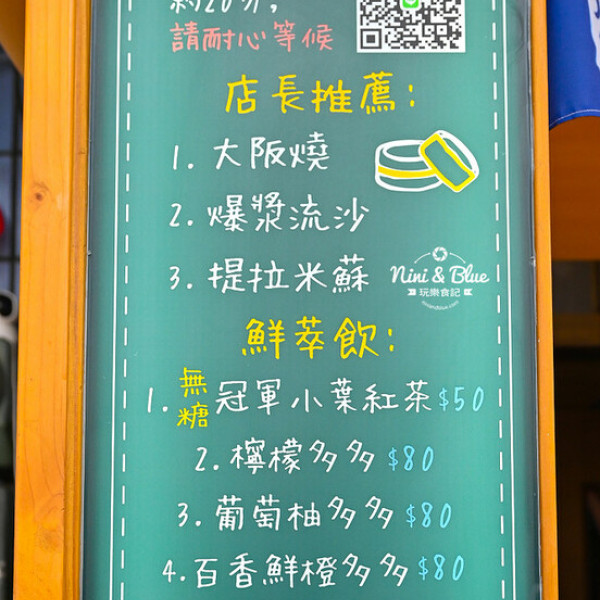 約20分,
請耐心等候
店長推薦:
1. 大阪燒
2. 爆漿流沙
3. 提拉米蘇
Nini & Blue
玩樂食記
鮮萃飲:
1. 無糖 冠軍小葉紅茶 $50
2. 檸檬多多 $80
3. 葡萄柚多多 $80
4. 百香鮮橙多多 $80